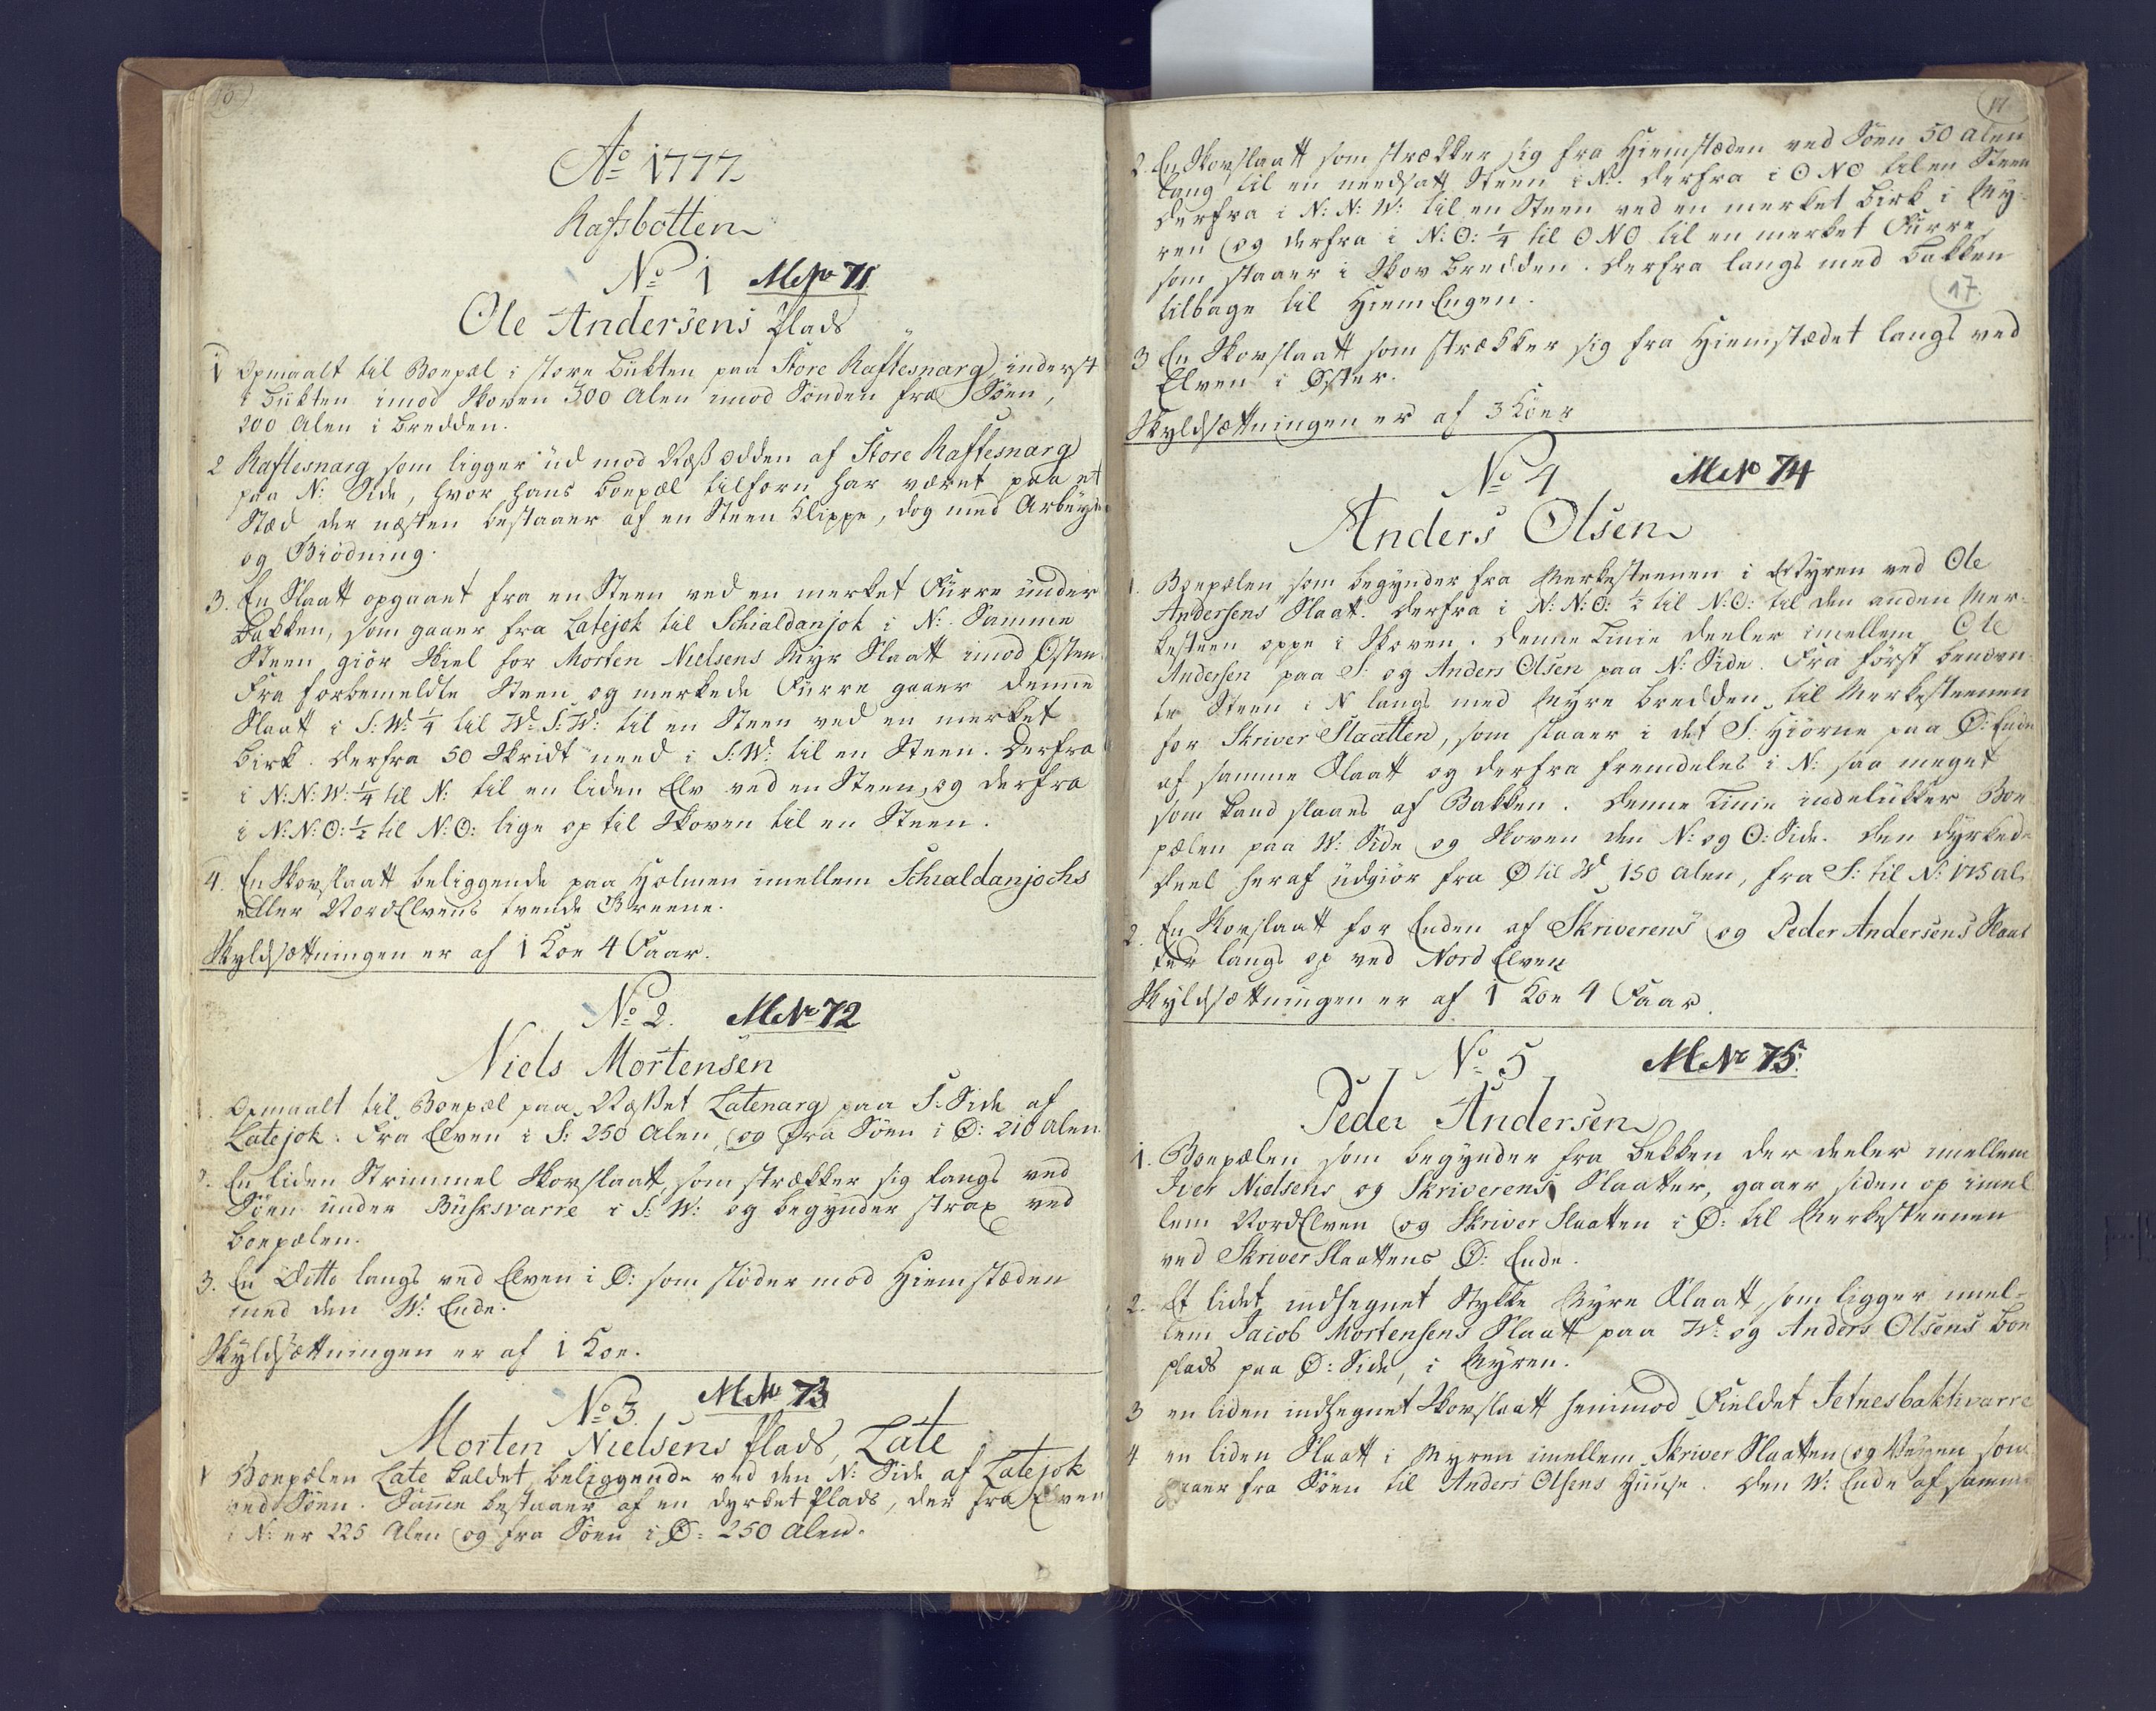 16
Ao 1777
Rafsbotten
No 1 MNo 71
Ole Andersens Plads
1 Opmaalt til Boepæl i store Bukten paa Store Raftesnarg inderst
i bukten imod Skoven 300 Alen imod Sonden fra Söen,
200 Alen i bredden.
2 Raftesnarg som ligger ud mod Næs odden af Store Raftesnarg
paa N: Side, hvor hans boepæl tilforn har været paa et
Stæd der næsten bestaaer af en Steen klippe, dog med Arbeyde
og Giödning.
3. En Slaatt opgaaet fra en Steen ved en merket Furre under
Bakken, som gaaer fra Latejok til Schialdanjok i N: Samme
Steen giör Skiel for Morten Nielsens Myr Slaatt imod Osten.
Fra forbemeldte Steen og merkede Furre gaaer denne
Slaat i S:W: 1/4 til W:S:W: til en Steen ved en merket
Birk. derfra 50 Skridt need i S:W: til en Steen. Derfra
i N:N:W: 1/4 til N: til en liden Elv ved en Steen, og derfra
i N:N:O: 1/2 til N:O: lige op til Skoven til en Steen.
4. En Skovslaatt beliggende paa Holmen imellem Schialdanjochs
eller NordElvens tvende Greene.
Skyldsættningen er af 1 Koe 4 Faar.
No 2. MNo 72
Niels Mortensen
1. Opmaalt til Boepæl paa Næsset Latenarg paa S: Side af
Latejok. Fra Elven i S: 250 Alen, og fra Söen i Ø: 210 Alen.
2. En liden Strimmel Skovslaatt, som strækker sig langs ved
Söen under Busksvarre i S: W: og begynder strax ved
boepælen.
3. En Ditto langs ved Elven i Ø: som stöder mod Hiemstæden
med den W: Ende.
Skyldsættningen er af 1 Koe.
No 3. MNo 73
Morten Nielsens Plads, Late
1 Boepælen Late kaldet, beliggende ved den N: Side af Latejok
ved Söen. Samme bestaaer af en dyrket Plads, der fra Elven
i N: er 225 Alen og fra Söen i Ø: 250 Alen.
17
2. En Skovslaatt som strækker sig fra Hiemstæden ved Söen 50 Alen
lang til en needsatt Steen i N:. derfra i ONO til en Steen
derfra i N: N: W: til en Steen ved en merket Birk i My-
ren og derfra i N:O: 1/4 til ONO til en merket Furre
som staaer i Skov bredden. derfra langs med bakken
tilbage til HiemEngen.
17
3 En Skovslaatt som strækker sig fra Hiemstædet langs ved
Elven i Öster.
Skyldsættningen er af 3 Koer
No 4 MNo 74
Anders Olsen
1. Boepælen som begynder fra Merkesteenen i Myren ved Ole
Andersens Slaat. derfra i N:N:O: 1/2 til N:O: til den anden Mer-
kesteen oppe i Skoven. denne Linie deeler imellem Ole
Andersen paa S: og Anders Olsen paa N: Side. Fra först benævn-
te Steen i N langs med Myre bredden til Merkesteenen
for Skriver Slaatten, som staaer i det S: Hiörne paa Ø: Ende
af samme Slaatt og derfra fremdeles i N: saa meget
som kand slaaes af Bakken. denne Linie indelukker Boe
pælen paa W: Side og Skoven den N: og O: Side. den dyrkede
deel heraf udgiör fra Ø til W 150 Alen, fra S: til N: 125 al.
2. En Skovslaatt for Enden af Skriverens og Peder Andersens Slaat
ter langs op ved Nord Elven
Skyldsættningen er af 1 Koe 4 Faar.
No 5 MNo 75.
Peder Andersen
1. Boepælen som begynder fra bekken der deeler imellem
Iver Nielsens og Skriverens Slaatter, gaaer siden op imel
lem NordElven og Skriver Slaatten i Ø: til Merkesteenen
ved Skriver Slaattens Ø: Ende.
2. Et lidet indhegnet Stykke Myre Slaatt, som ligger imel-
lem Jacob Mortensens Slaatt paa W: og Anders Olsens Boe
plads paa Ø: Side, i Myren.
3 en liden indhegnet Skovslaatt henimod Fieldet Jetnesbakhvarre
4 en liden Slaatt i Myren imellem Skriver Slaatten og Veigen som
gaaer fra Söen til Anders Olsens Huuse. Den W: Ende af samme